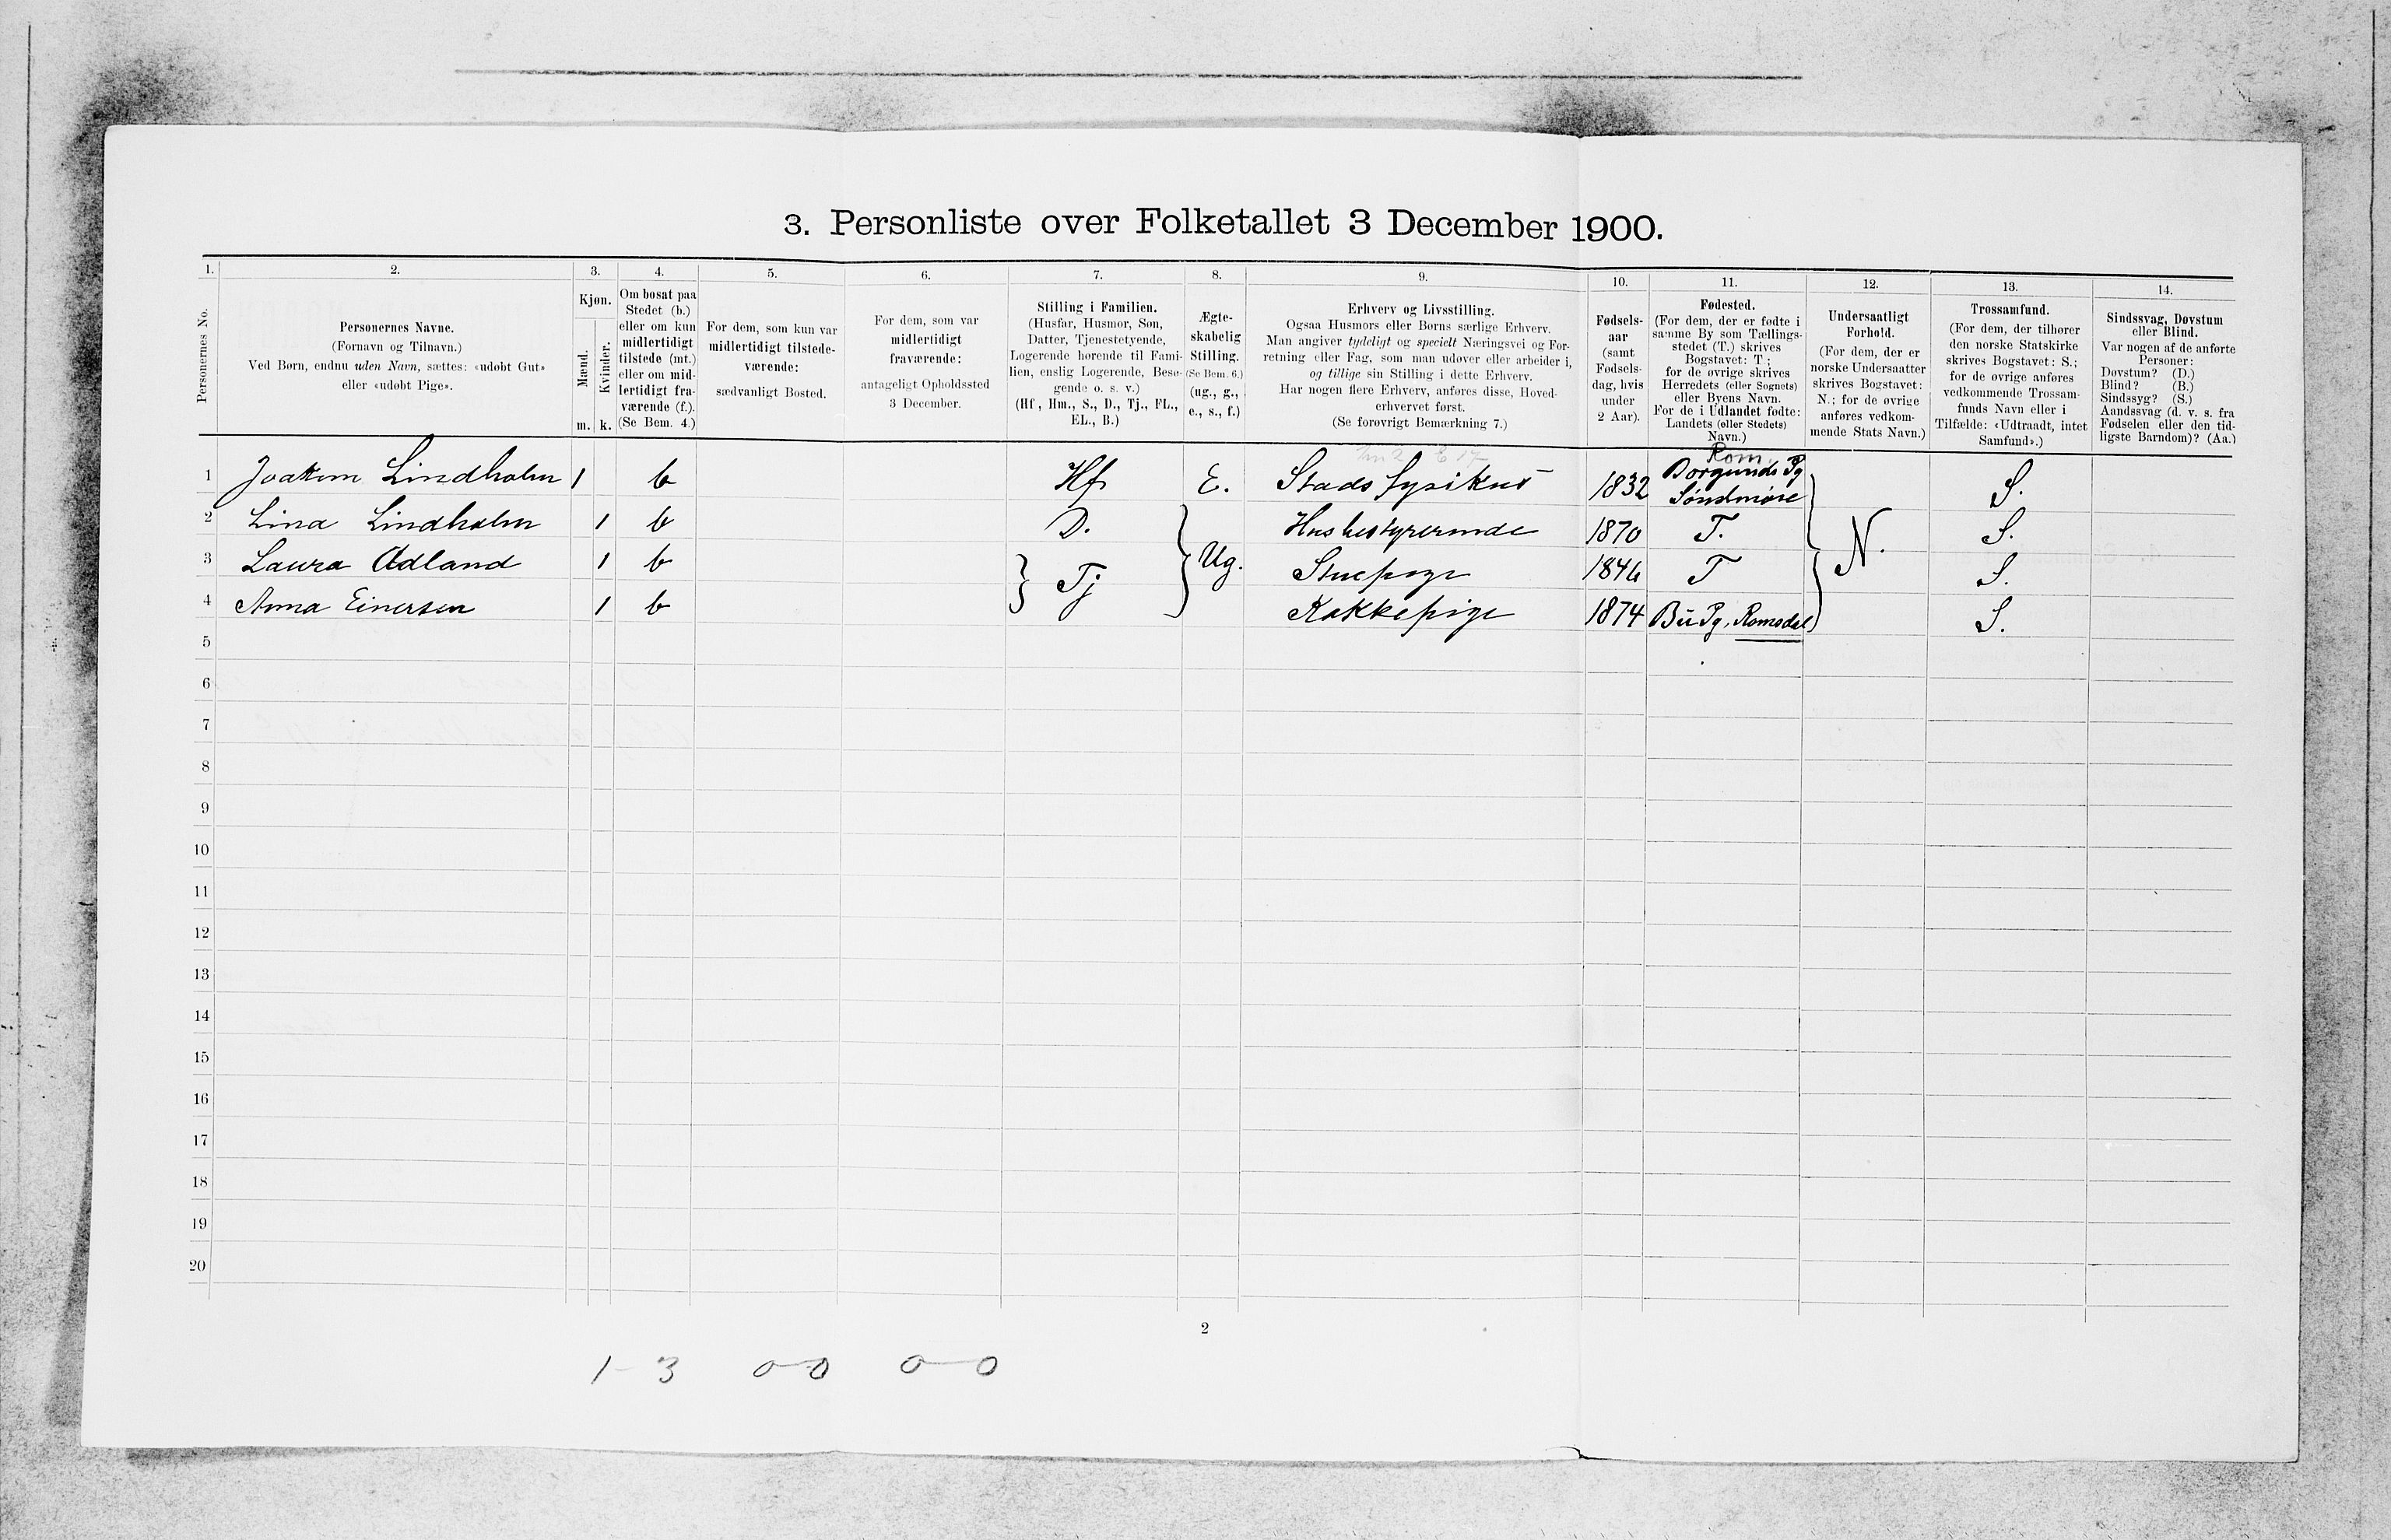 3. Personliste over Folketallet 3 December 1900.
1. 2. 3. 4. 5. 6. 7. 8. 9. 10. 11. 12. 13. 14.
Personernes No.
Personernes Navne.
(Fornavn og Tilnavn.)
Ved Børn, endnu uden Navn, sættes: «udøbt Gut»
eller «udøbt Pige».
Kjøn.
Mænd.
Kvinder.
m. k.
Om bosat paa
Stedet (b.)
eller om kun
midlertidigt
tilstede (mt.)
eller om mid-
lertidigt fra-
værende (f.).
(Se Bem. 4.)
For dem, som kun var
midlertidigt tilstede-
værende:
sædvanligt Bosted.
For dem, som var
midlertidigt
fraværende:
antageligt Opholdssted
3 December.
Stilling i Familien.
(Husfar, Husmor, Søn,
Datter, Tjenestetyende,
Logerende hørende til Fami-
lien, enslig Logerende, Besø-
gende o. s. v.)
(Hf, Hm., S., D., Tj., FL.,
EL., B.)
Ægte-
skabelig
Stilling.
(Se Bem. 6.)
(ug., g.,
e., s., f.)
Erhverv og Livsstilling.
Ogsaa Husmors eller Børns særlige Erhverv.
Man angiver tydeligt og specielt Næringsvei og For-
retning eller Fag, som man udøver eller arbeider i,
og tillige sin Stilling i dette Erhverv.
Har nogen flere Erhverv, anføres disse, Hoved-
erhvervet først.
(Se forøvrigt Bemærkning 7.)
Fødsels-
aar
(samt
Fødsels-
dag, hvis
under
2 Aar).
Fødested.
(For dem, der er fødte i
samme By som Tællings-
stedet (T.) skrives
Bogstavet: T.;
for de øvrige skrives
Herredets (eller Sognets)
eller Byens Navn.
For de i Udlandet fødte:
Landets (eller Stedets)
Navn.)
Undersaatligt
Forhold.
(For dem, der er
norske Undersaatter
skrives Bogstavet:
N.; for de øvrige
anføres vedkom-
mende Stats Navn.)
Trossamfund.
(For dem, der tilhører
den norske Statskirke
skrives Bogstavet: S.;
for de øvrige anføres
vedkommende Trossam-
funds Navn eller i
Tilfælde: «Udtraadt, intet
Samfund».)
Sindssvag, Døvstum
eller Blind.
Var nogen af de anførte
Personer:
Døvstum? (D.)
Blind? (B.)
Sindssyg? (S.)
Aandssvag (d. v. s. fra
Fødselen eller den tid-
ligste Barndom)? (Aa.)
Rom.
1 Joakim Lindholm 1 b Hf E. Stadsfysikus 1832 Borgunds Pg Søndmøre S.
2 Lina Lindholm 1 b D. Husbestyrerinde 1870 T. S.
3 Laura Adland 1 b } Tj } Ug. Stuepige 1846 T } N. S.
4 Anna Einersen 1 b Kokkepige 1874 Bü Pg, Romsdal S.
5
6
7
8
9
10
11
12
13
14
15
16
17
18
19
20
2
1 - 3 0-0 0-0